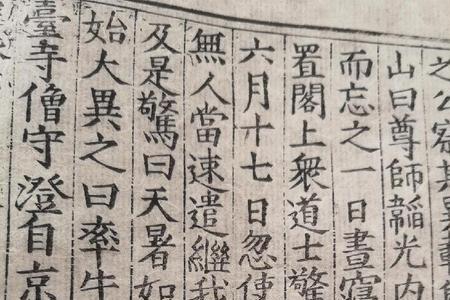 之公察其異
山曰尊師韜光内
而忘之一日晝寢
置閣上衆道士驚
六月十七日忽使
無人當速遣繼我
及是驚曰天暑如
始大異之曰率牛
臺寺僧守澄自京